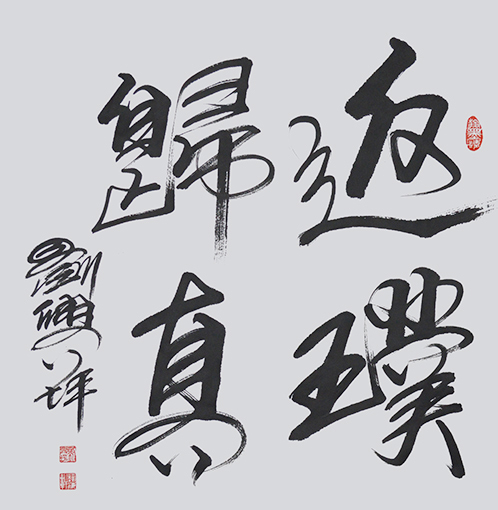 返璞
歸真
劉興坪